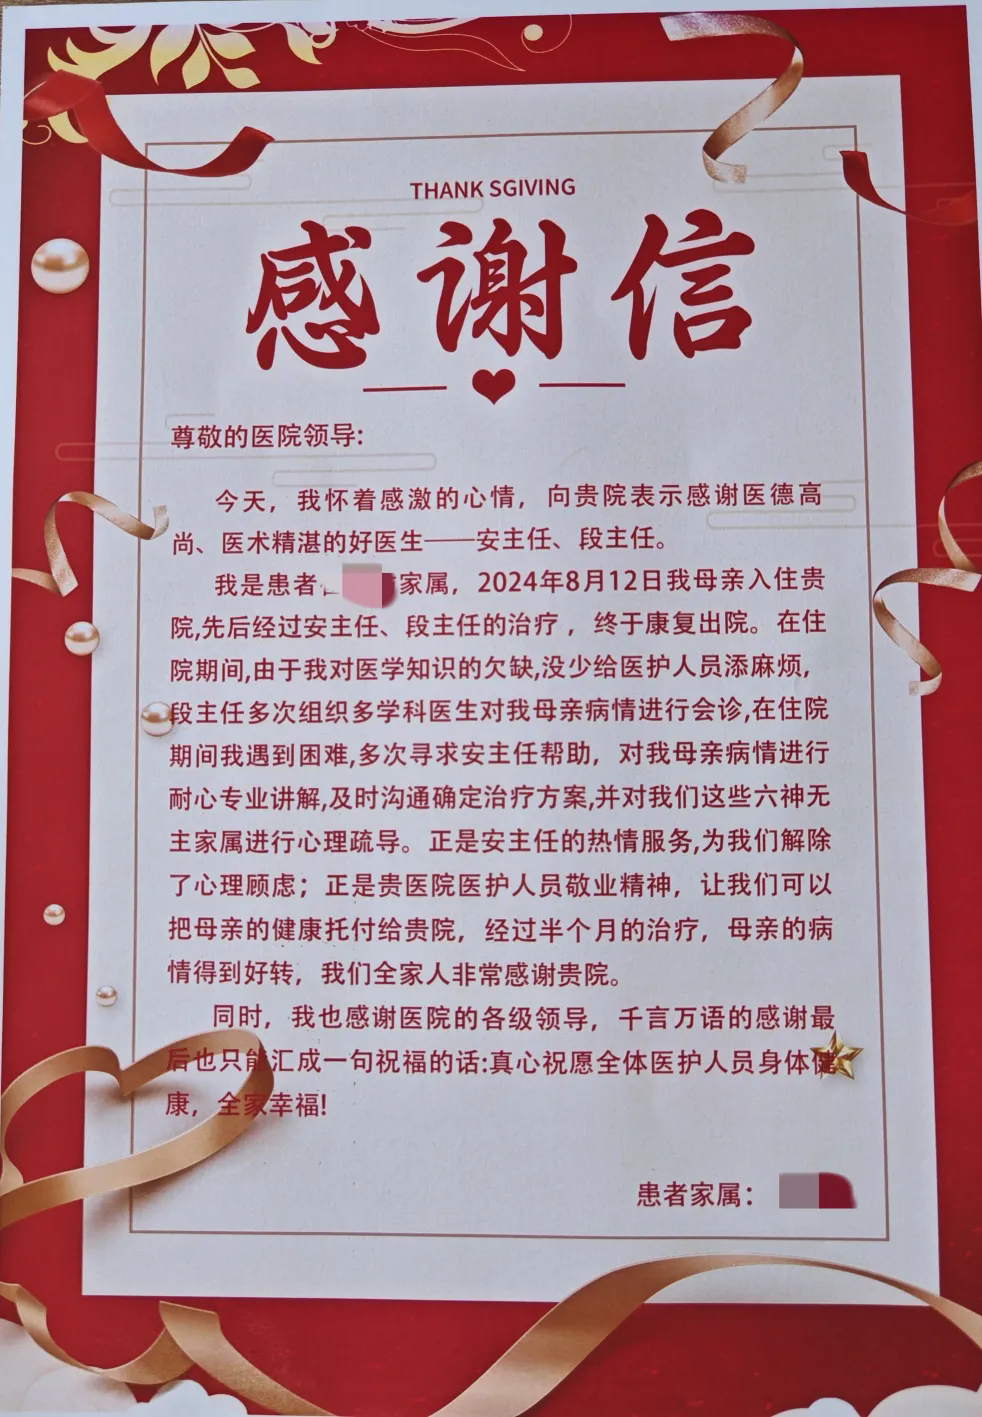 THANK SGIVING
感谢信
尊敬的医院领导:
今天，我怀着感激的心情，向贵院表示感谢医德高
尚、医术精湛的好医生——安主任、段主任。
我是患者家属，2024年8月12日我母亲入住贵
院,先后经过安主任、段主任的治疗，终于康复出院。在住
院期间,由于我对医学知识的欠缺,没少给医护人员添麻烦,
段主任多次组织多学科医生对我母亲病情进行会诊,在住院
期间我遇到困难,多次寻求安主任帮助，对我母亲病情进行
耐心专业讲解,及时沟通确定治疗方案,并对我们这些六神无
主家属进行心理疏导。正是安主任的热情服务,为我们解除
了心理顾虑；正是贵医院医护人员敬业精神，让我们可以
把母亲的健康托付给贵院，经过半个月的治疗，母亲的病
情得到好转，我们全家人非常感谢贵院。
同时，我也感谢医院的各级领导，千言万语的感谢最
后也只能汇成一句祝福的话:真心祝愿全体医护人员身体健
康，全家幸福!
患者家属：